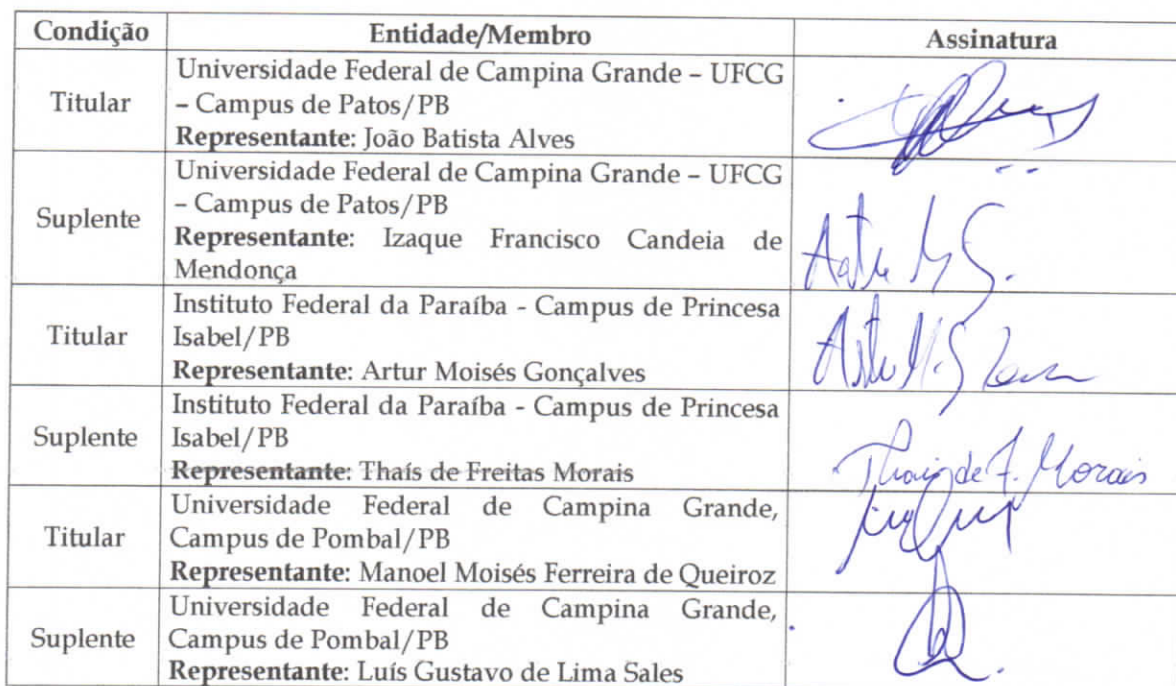 Condição Entidade/Membro Assinatura
Universidade Federal de Campina Grande – UFCG
Titular – Campus de Patos/PB
Representante: João Batista Alves
Universidade Federal de Campina Grande – UFCG
– Campus de Patos/PB
Suplente
Representante: Izaque Francisco Candeia de
Mendonça
Instituto Federal da Paraíba - Campus de Princesa
Titular Isabel/PB
Representante: Artur Moisés Gonçalves
Instituto Federal da Paraíba - Campus de Princesa
Suplente Isabel/PB
Representante: Thaís de Freitas Morais
Thais de F. Morais
Universidade Federal de Campina Grande,
Titular Campus de Pombal/PB
Representante: Manoel Moisés Ferreira de Queiroz
Universidade Federal de Campina Grande,
Suplente Campus de Pombal/PB
Representante: Luís Gustavo de Lima Sales